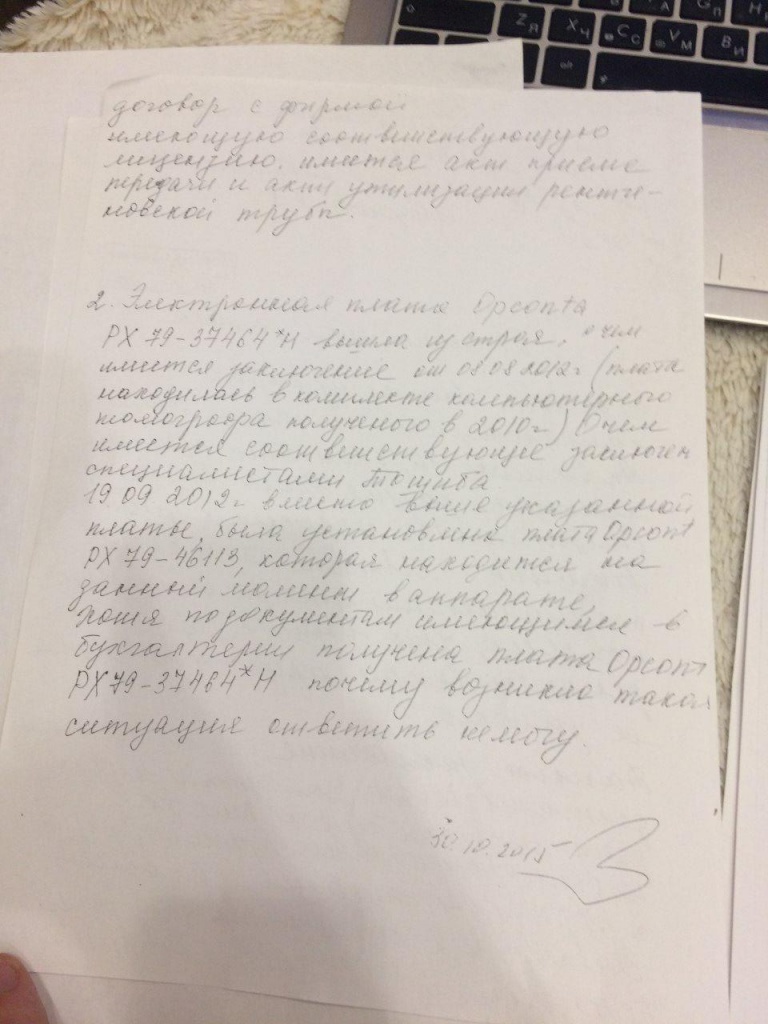 договор с фирмой
имеющую соответствующую
лицензию. имеется акт приема
передачи и акт утилизации рентге-
новской трубы.
2. Электронная плата Opcont a
PX 79-37464*H вышла из строя, о чем
имеется заключение от 08 08 2012г (плата
находилась в комплекте компьютерного
томографа полученого в 2010г.) О чем
имеется соответствующие заключен
специалистами Тошиба
19 09 2012г. вместо выше указанной
платы, была установлена плата Opcont
PX 79-46113, которая находится на
данный момент в аппарате,
хотя по документам имеющимся в
бухгалтерии получена плата Opcont
PX79-37464*H почему возникла такая
ситуация ответить не могу.
30.10.2015
Zя Хч Сс Vм Ви